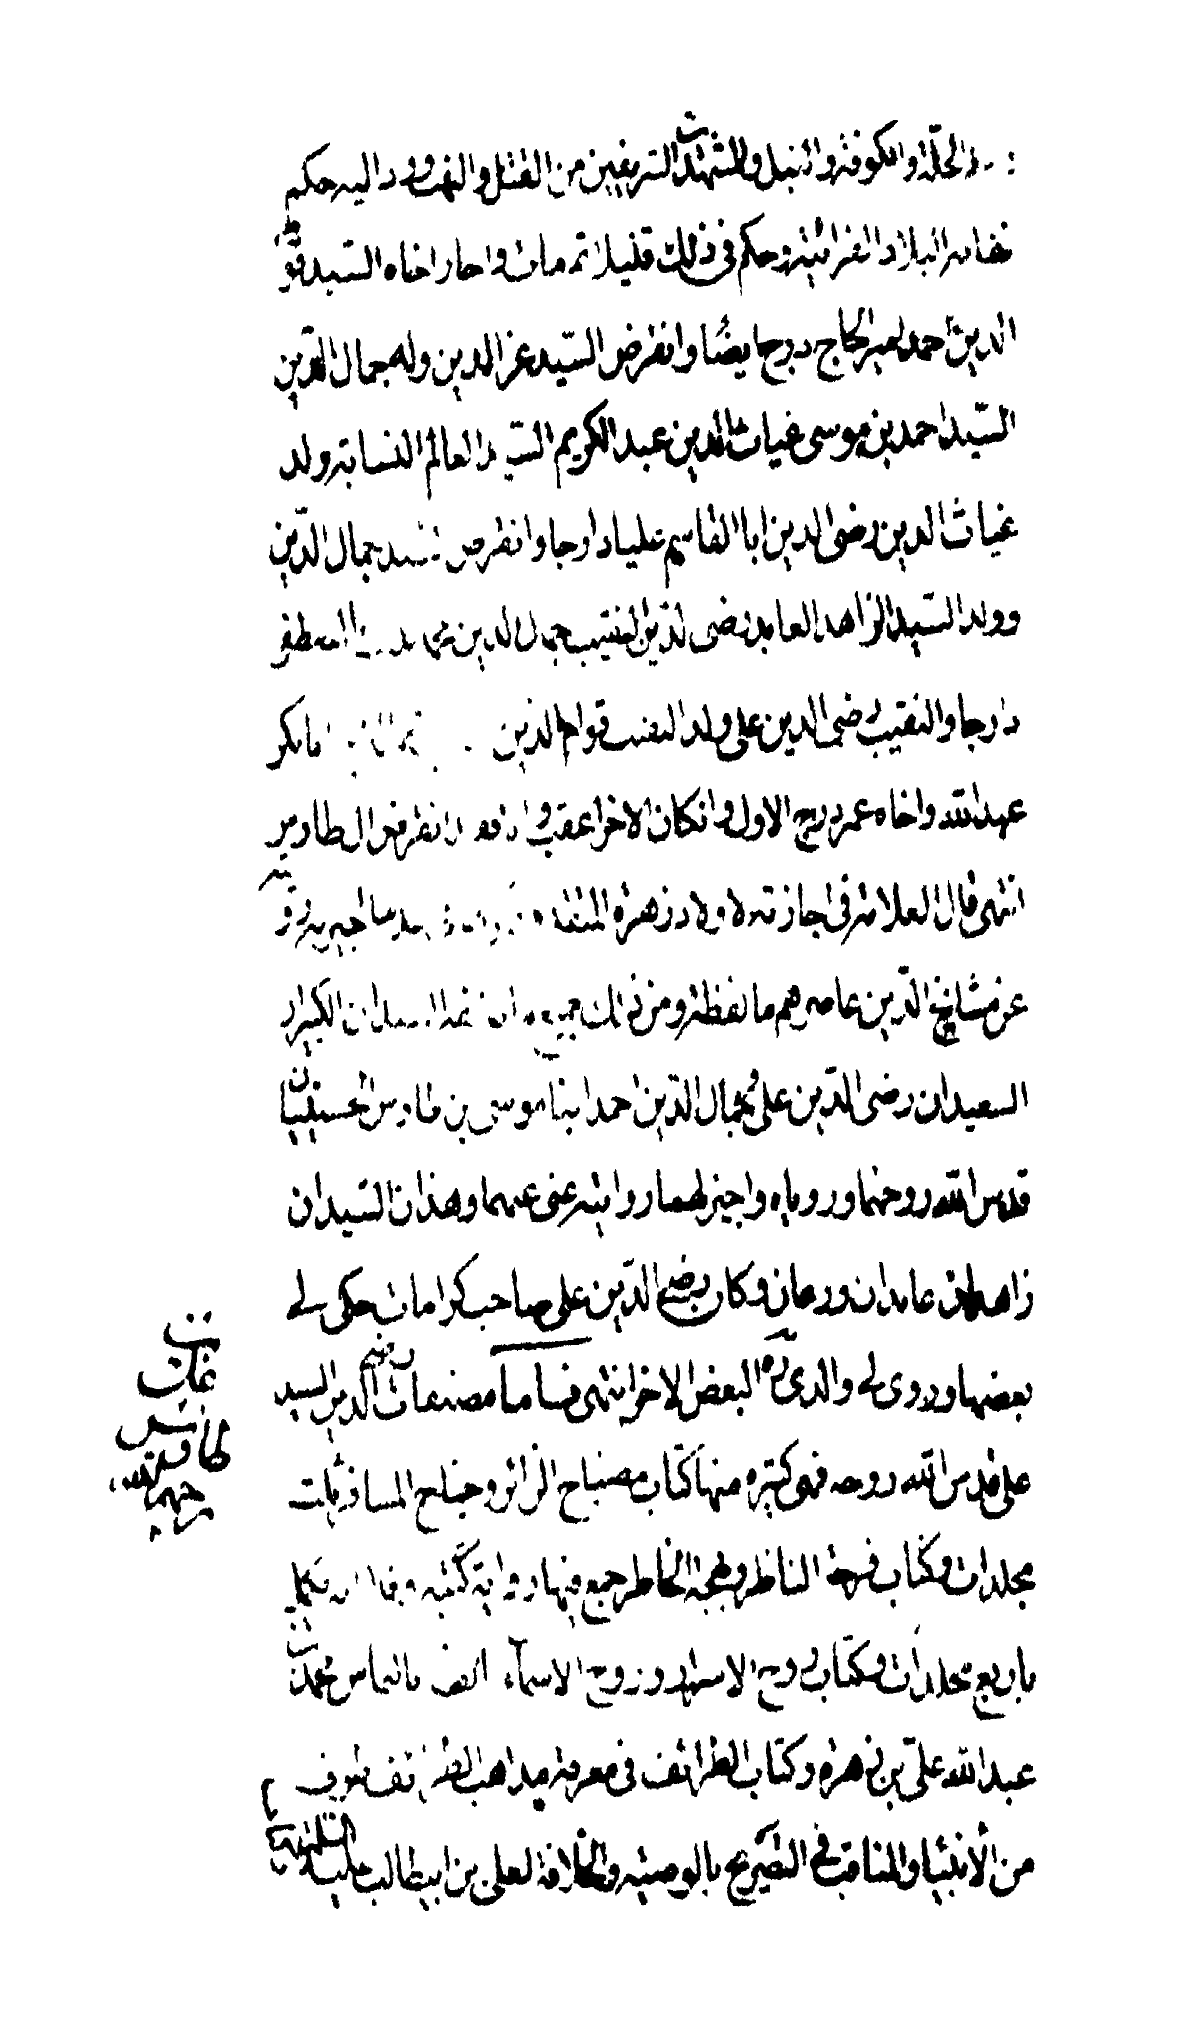 الحلة والكوفة والنيل والمشهدان الشريفين من القتل والنهب ورد اليه حكم
نقابه البلاد الفراتيه وحكم في ذلك قليلا ثم مات واجاز اخاه السيد قوام
الدين احمد امير الحاج درج ايضا وانقرض السيد عز الدين وله جمال الدين
السيد احمد بن موسى غياث الدين عبد الكريم السيد العالم النسابه ولد
غياث الدين رضى الدين ابا القاسم عليا دارجا وانقرض السيد جمال الدين
وولد السيد الزاهد العابد رضى الدين النقيب جمال الدين محمد المصطفى
دارجا والنقيب رضى الدين على ولد النقيب قوام الدين ابا بكر
عبد الله واخاه عمر درج الاول وان كان الاخر اعقب والا فقد انقرض ال طاوس
انتهى قال العلامه فى اجازته لاولاد زهره
عن مشايخ الذين عاصرهم ما لفظه ومن ذلك جميع الكبيران
السعيدان رضى الدين على وجمال الدين احمد ابنا موسى بن طاوس الحسنيان
قدس الله روحهما ورویاه واجيز لهما روايته عنى عنهما وهذان السيدان
زاهدان عابدان ورعان وكان رضى الدين على صاحب كرامات حكى لي
بعضها وروى لي والدى ره البعض الاخر انتهى فساما مصنفات رضي الدين السيد
على قدس الله روحه فهى كثيره منها كتاب مصباح الزائر وجناح المسافر ثلث
مجلدات وكتاب فرحة الناظر وبهجة الخاطر جمع فيها روايته كتبه وقال انه تكمل
باربع مجلدات وكتاب روح الاسرار وروح الاسمآء الفه بالتماس محمد بن
عبد الله على بن زهره وكتاب الطرائف فى معرفة مذاهب الطوائف وطرف
من الأنباء والمناقب في التصريح بالوصيه والخلافة لعلى بن ابيطالب عليه السلام
مصنفات
طاوس
رحمه الله